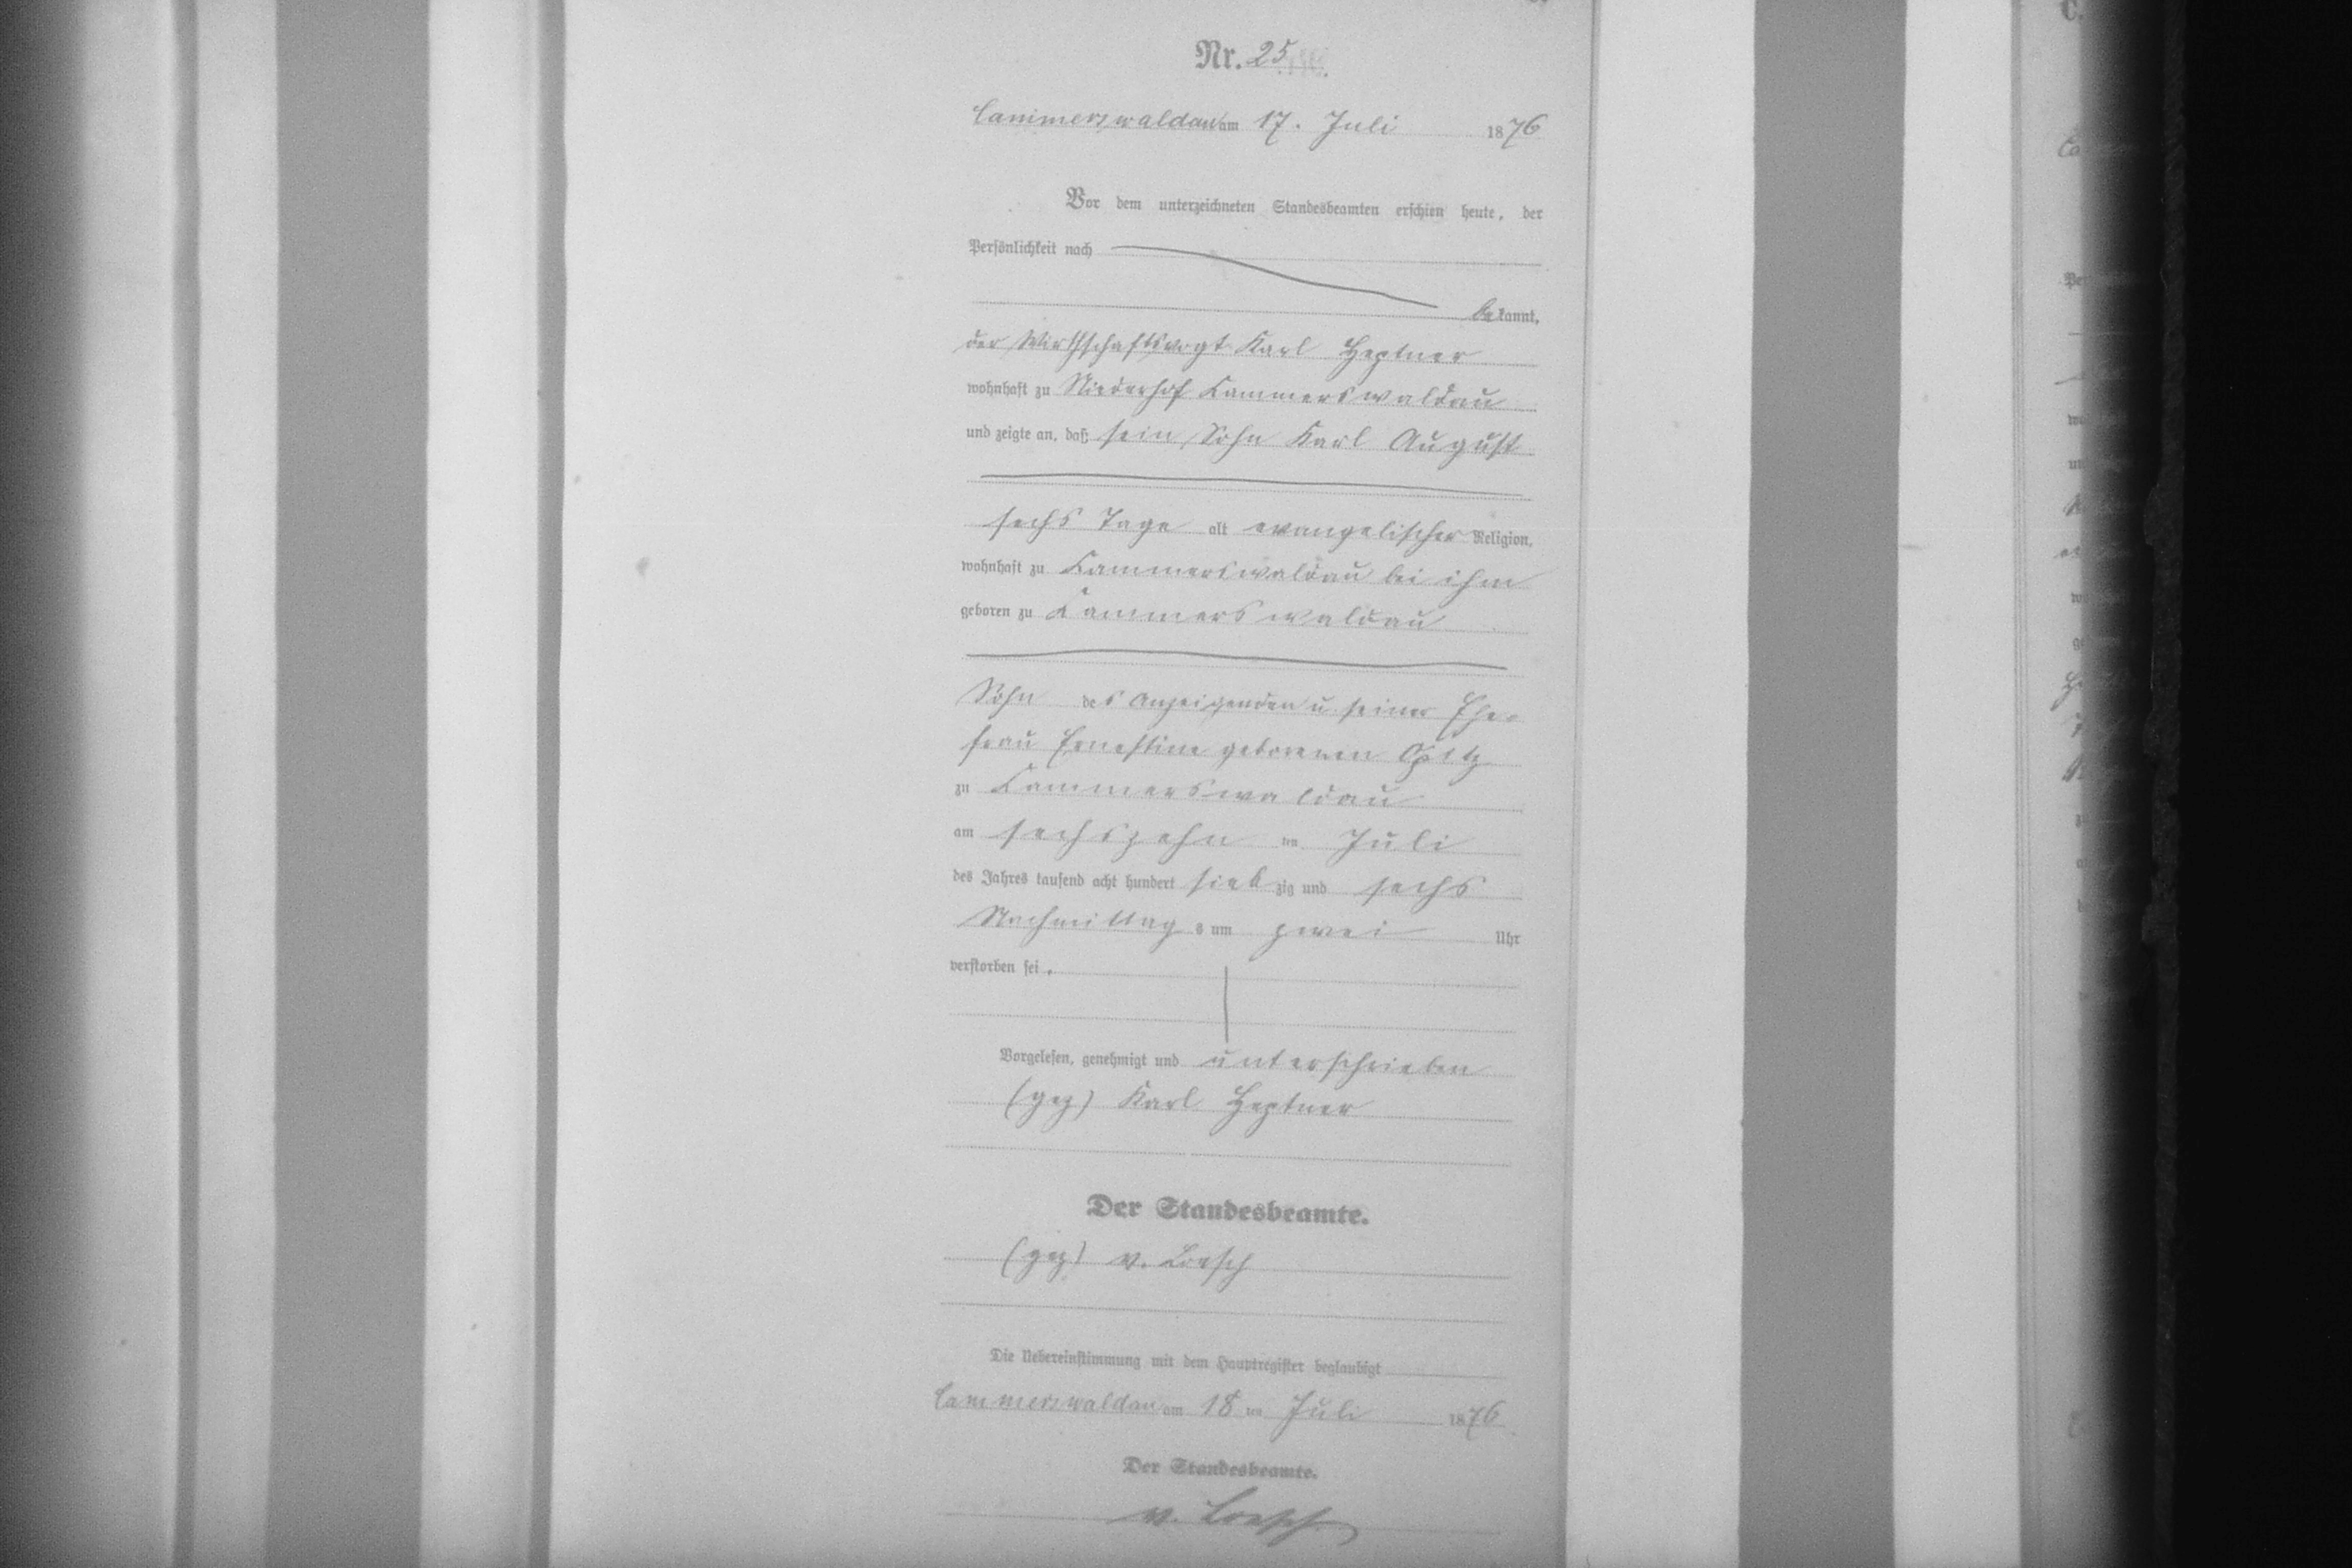 Nr. 25.
Cammerswaldau am 17. Juli 1876
Vor dem unterzeichneten Standesbeamten erschien heute, der
Persönlichkeit nach
be kannt,
der Wirthschaftsvogt Karl Heptner
wohnhaft zu Niederhof Kammerswaldau
und zeigte an, daß sein Sohn Karl August
sechs Tage alt evangelischer Religion,
wohnhaft zu Kammerswaldau bei ihm
geboren zu Kammerswaldau
Sohn des Anzeigenden u. seiner Ehe-
frau Ernestine geborenen Opitz
zu Kammerswaldau
am sechszehn ten Juli
des Jahres tausend acht hundert sieb zig und sechs
Nachmittag s um zwei Uhr
verstorben sei.
Vorgelesen, genehmigt und unterschrieben
(gez) Karl Heptner
Der Standesbeamte.
(gez) v. Loesch
Die Uebereinstimmung mit dem Hauptregister beglaubigt
Cammerswaldau am 18 ten Juli 1876
Der Standesbeamte.
v. Loesch